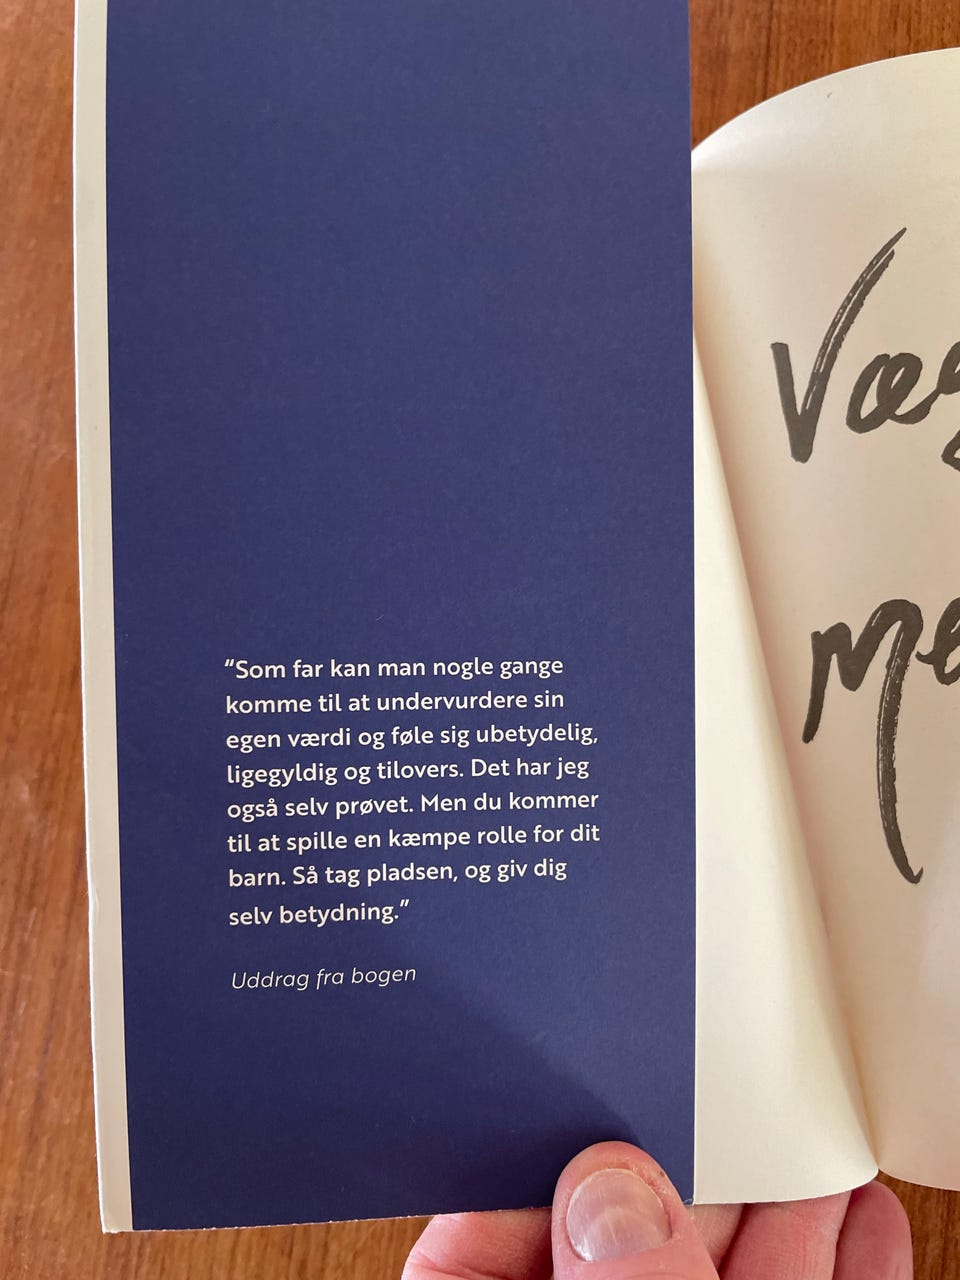 “Som far kan man nogle gange
komme til at undervurdere sin
egen værdi og føle sig ubetydelig,
ligegyldig og tilovers. Det har jeg
også selv prøvet. Men du kommer
til at spille en kæmpe rolle for dit
barn. Så tag pladsen, og giv dig
selv betydning.”
Uddrag fra bogen